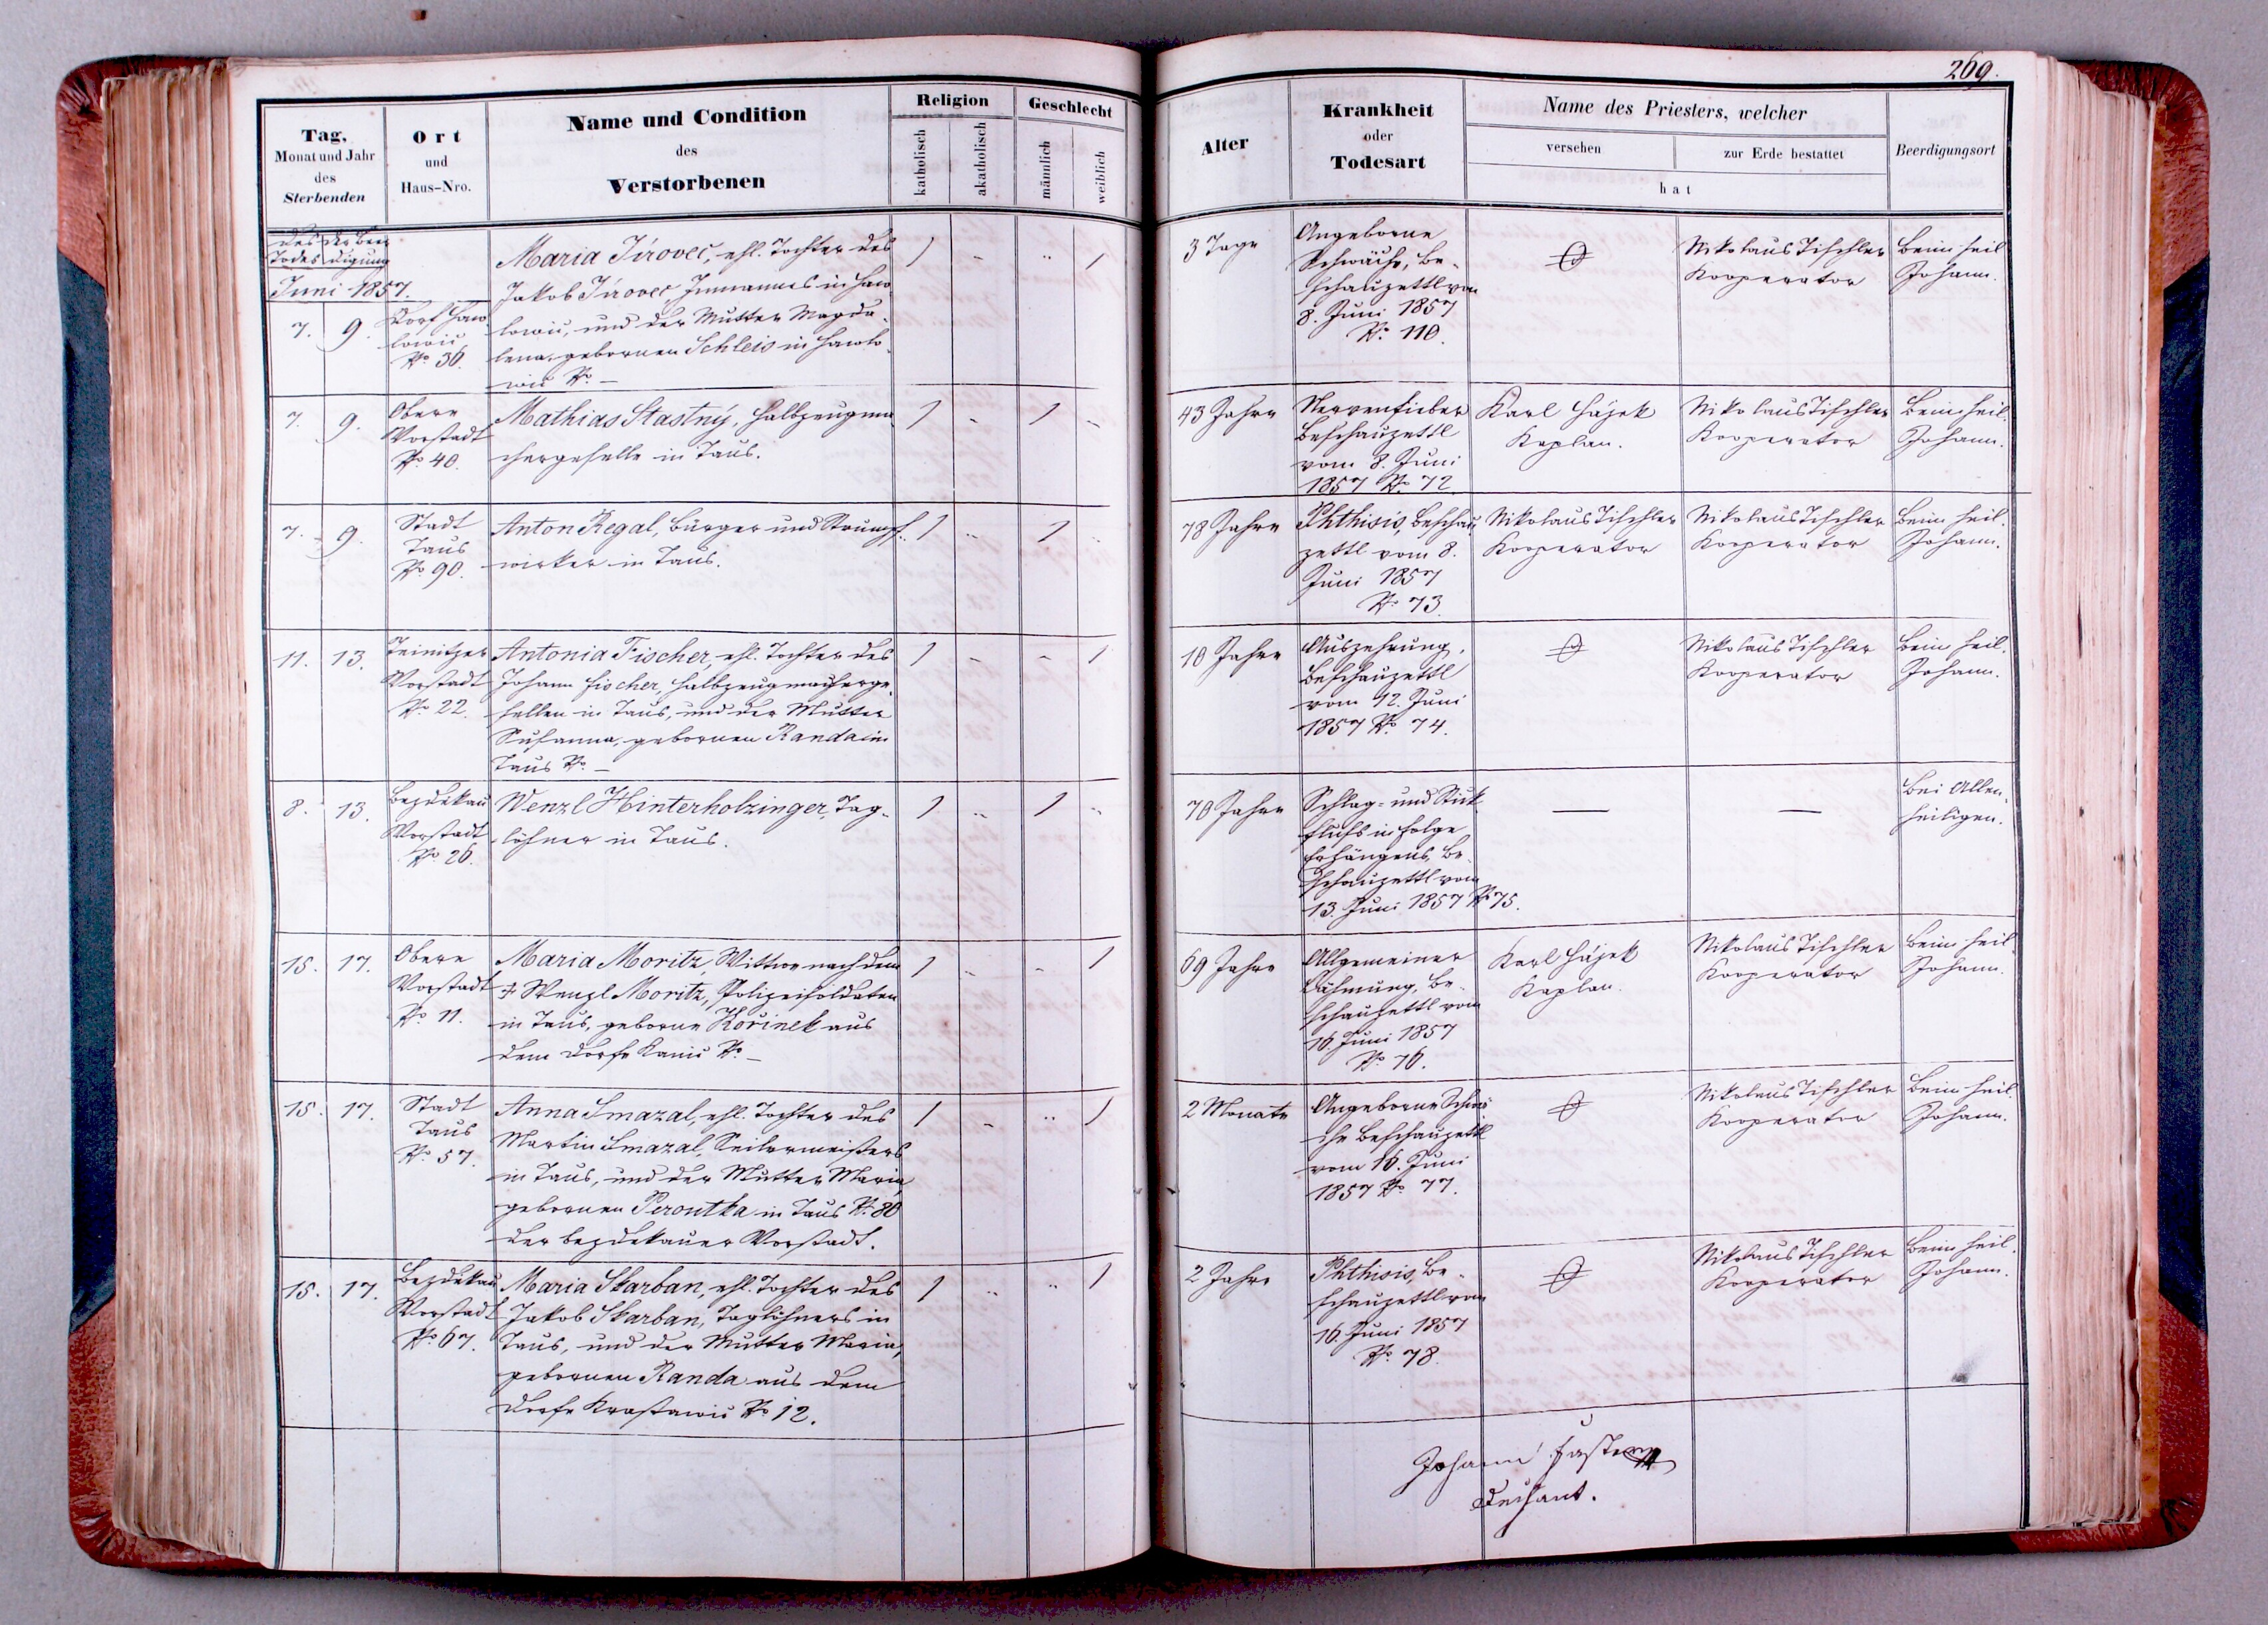 269.
Tag,
Monat und Jahr
des
Sterbenden
Ort
und
Haus-Nro.
Name und Condition
des
Verstorbenen
Religion
katholisch
akatholisch
Geschlecht
männlich
weiblich
Alter
Krankheit
oder
Todesart
Name des Priesters, welcher
versehen
zur Erde bestattet
hat
Beerdigungsort
des der Beer
Todes digung
Juni 1857.
7. 9.
Dorf Haw
lowic,
No 36.
Maria Jirovec, ehl. Tochter des
Jakob Jirovec, Inmannes in Haw
lowic, und der Mutter Magda-
lena, gebornen Schleis in Hawlo-
wic No –
1 - " 1
3 Tage
Angeborne
Schwäche, Be-
schauzettl vom
8. Juni 1857
No. 110.
Nikolaus Tischler
Kooperator
Beim heil
Johann.
7. 9.
Obere
Vorstadt
No. 40.
Mathias Stastný, Halbzeugma
chergeselle in Taus.
1 - 1 -
43 Jahre
Nervenfieber
Beschauzettl
vom 8. Juni
1857 No. 72
Karl Hájek
Kaplan.
Nikolaus Tischler
Kooperator
Beim heil.
Johann.
7. 9.
Stadt
Taus
No 90.
Anton Regal, Bürger und Strumpf-
wirker in Taus.
1 " 1 "
78 Jahre
Phthisis, Beschau
zettl vom 8.
Juni 1857
No. 73.
Nikolaus Tischler
Kooperator
Nikolaus Tischler
Kooperator
Beim heil.
Johann.
11. 13.
Teinitzer
Vorstadt
No 22.
Antonia Fischer, ehl. Tochter des
Johann Fischer, Halbzeugmacherge-
sellen in Taus, und der Mutter
Susanna, gebornen Randa in
Taus No –
1 - - 1
10 Jahre
Auszehrung,
Beschauzettl
vom 12. Juni
1857 No. 74.
Nikolaus Tischler
Kooperator
Beim heil.
Johann.
8. 13.
Bezdĕkau
Vorstadt
No 26.
Wenzl Hinterholzinger, Tag-
löhner in Taus.
1 " 1 "
70 Jahre
Schlag- und Stick
fluß in Folge
Erhängens, Be-
schauzettl vom
13. Juni 1857 No 75.
—
—
Bei Allen-
heiligen.
15. 17.
Obere
Vorstadt
No 11.
Maria Moritz, Wittwe nach dem
† Wenzl Moritz, Polizeisoldaten
in Taus, geborne Kořinek aus
dem Dorfe Kanic No. –
1 - - 1
69 Jahre
Allgemeiner
Lähmung, Be-
schauzettl vom
16. Juni 1857
No. 76.
Karl Hájek
Kaplan.
Nikolaus Tischler
Kooperator
Beim heil
Johann.
15. 17.
Stadt
Taus
No 57.
Anna Smazal, ehl. Tochter des
Martin Smazal, Seilermeisters
in Taus, und der Mutter Maria,
gebornen Peroutka in Taus No. 80
der bezdekauer Vorstadt.
1 - " 1
2 Monate
Angeborne Schwä
che Beschauzettl
vom 16. Juni
1857 No. 77.
Nikolaus Tischler
Kooperator
Beim heil.
Johann.
15. 17.
Bezdĕkau
Vorstadt
No 67.
Maria Skarban, ehl. Tochter des
Jakob Skarban, Taglöhners in
Taus, und der Mutter Maria,
gebornen Randa aus dem
Dorfe Krastawic No 12.
1 " " 1
2 Jahre
Phthisis, Be-
schauzettl vom
16. Juni 1857
No. 78.
Nikolaus Tischler
Kooperator
Beim heil.
Johann.
Johann Faster
Dechant.